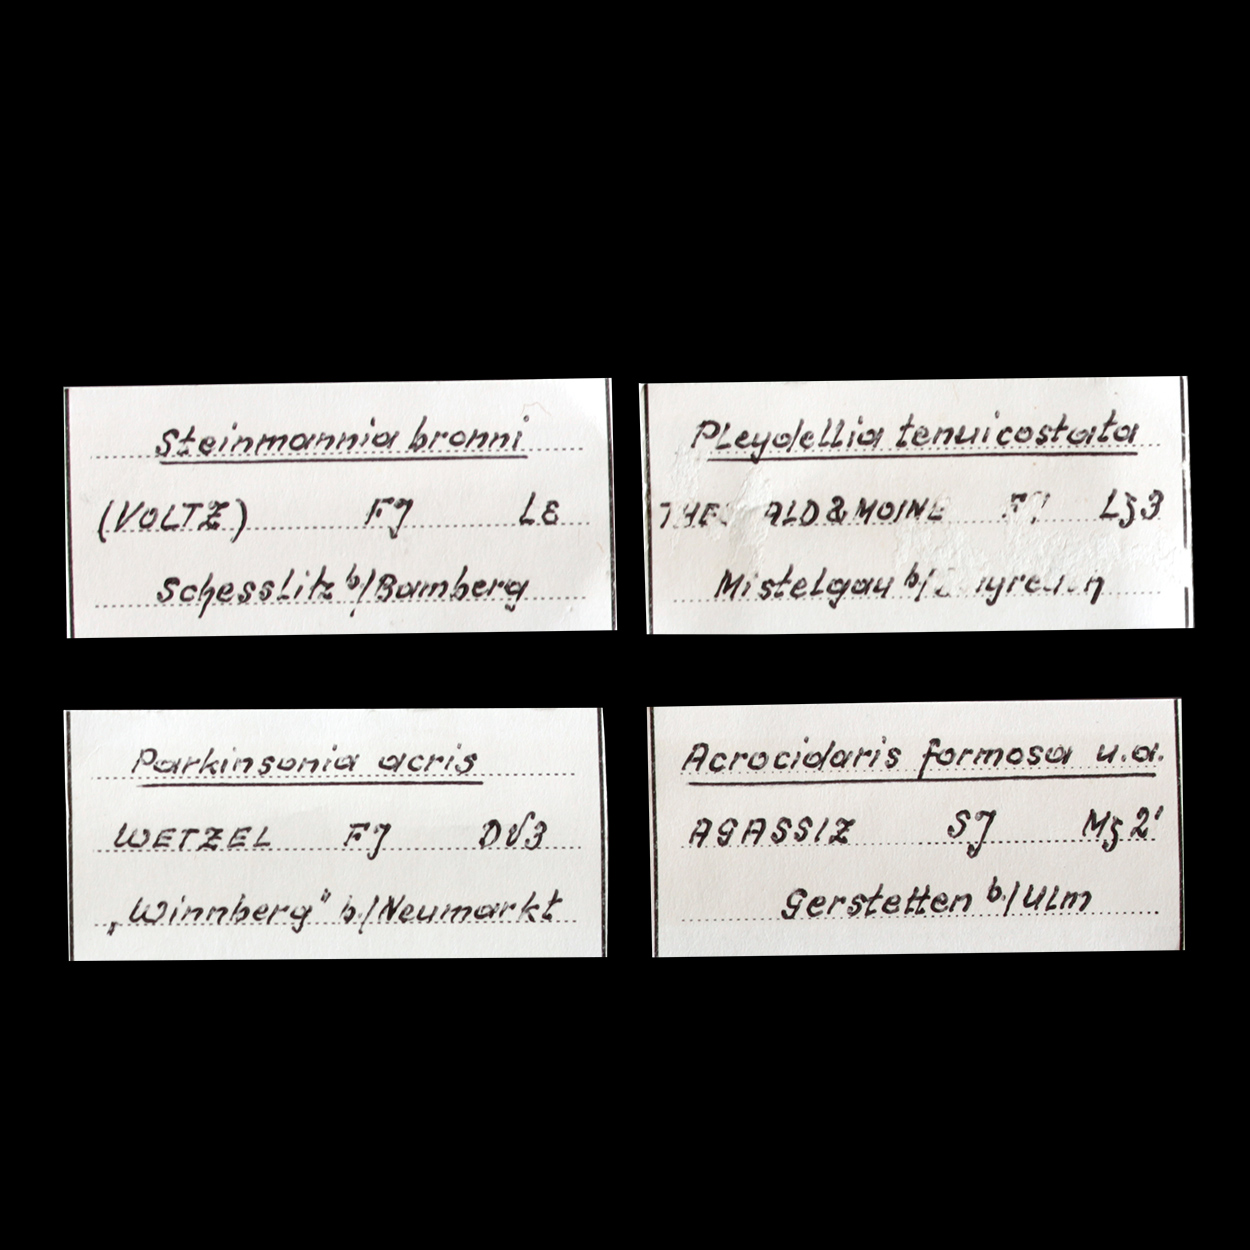 Steinmannia bronni
(VOLTZ) FJ Lε
Schesslitz b/Bamberg
Pleydellia tenuicostata
ALD & MOINE Lζ3
Mistelgau b/
Parkinsonia acris
WETZEL FJ Dδ3
„Winnberg" b./Neumarkt
Acrocidaris formosa u.a.
AGASSIZ SJ Mζ2'
Gerstetten b./Ulm